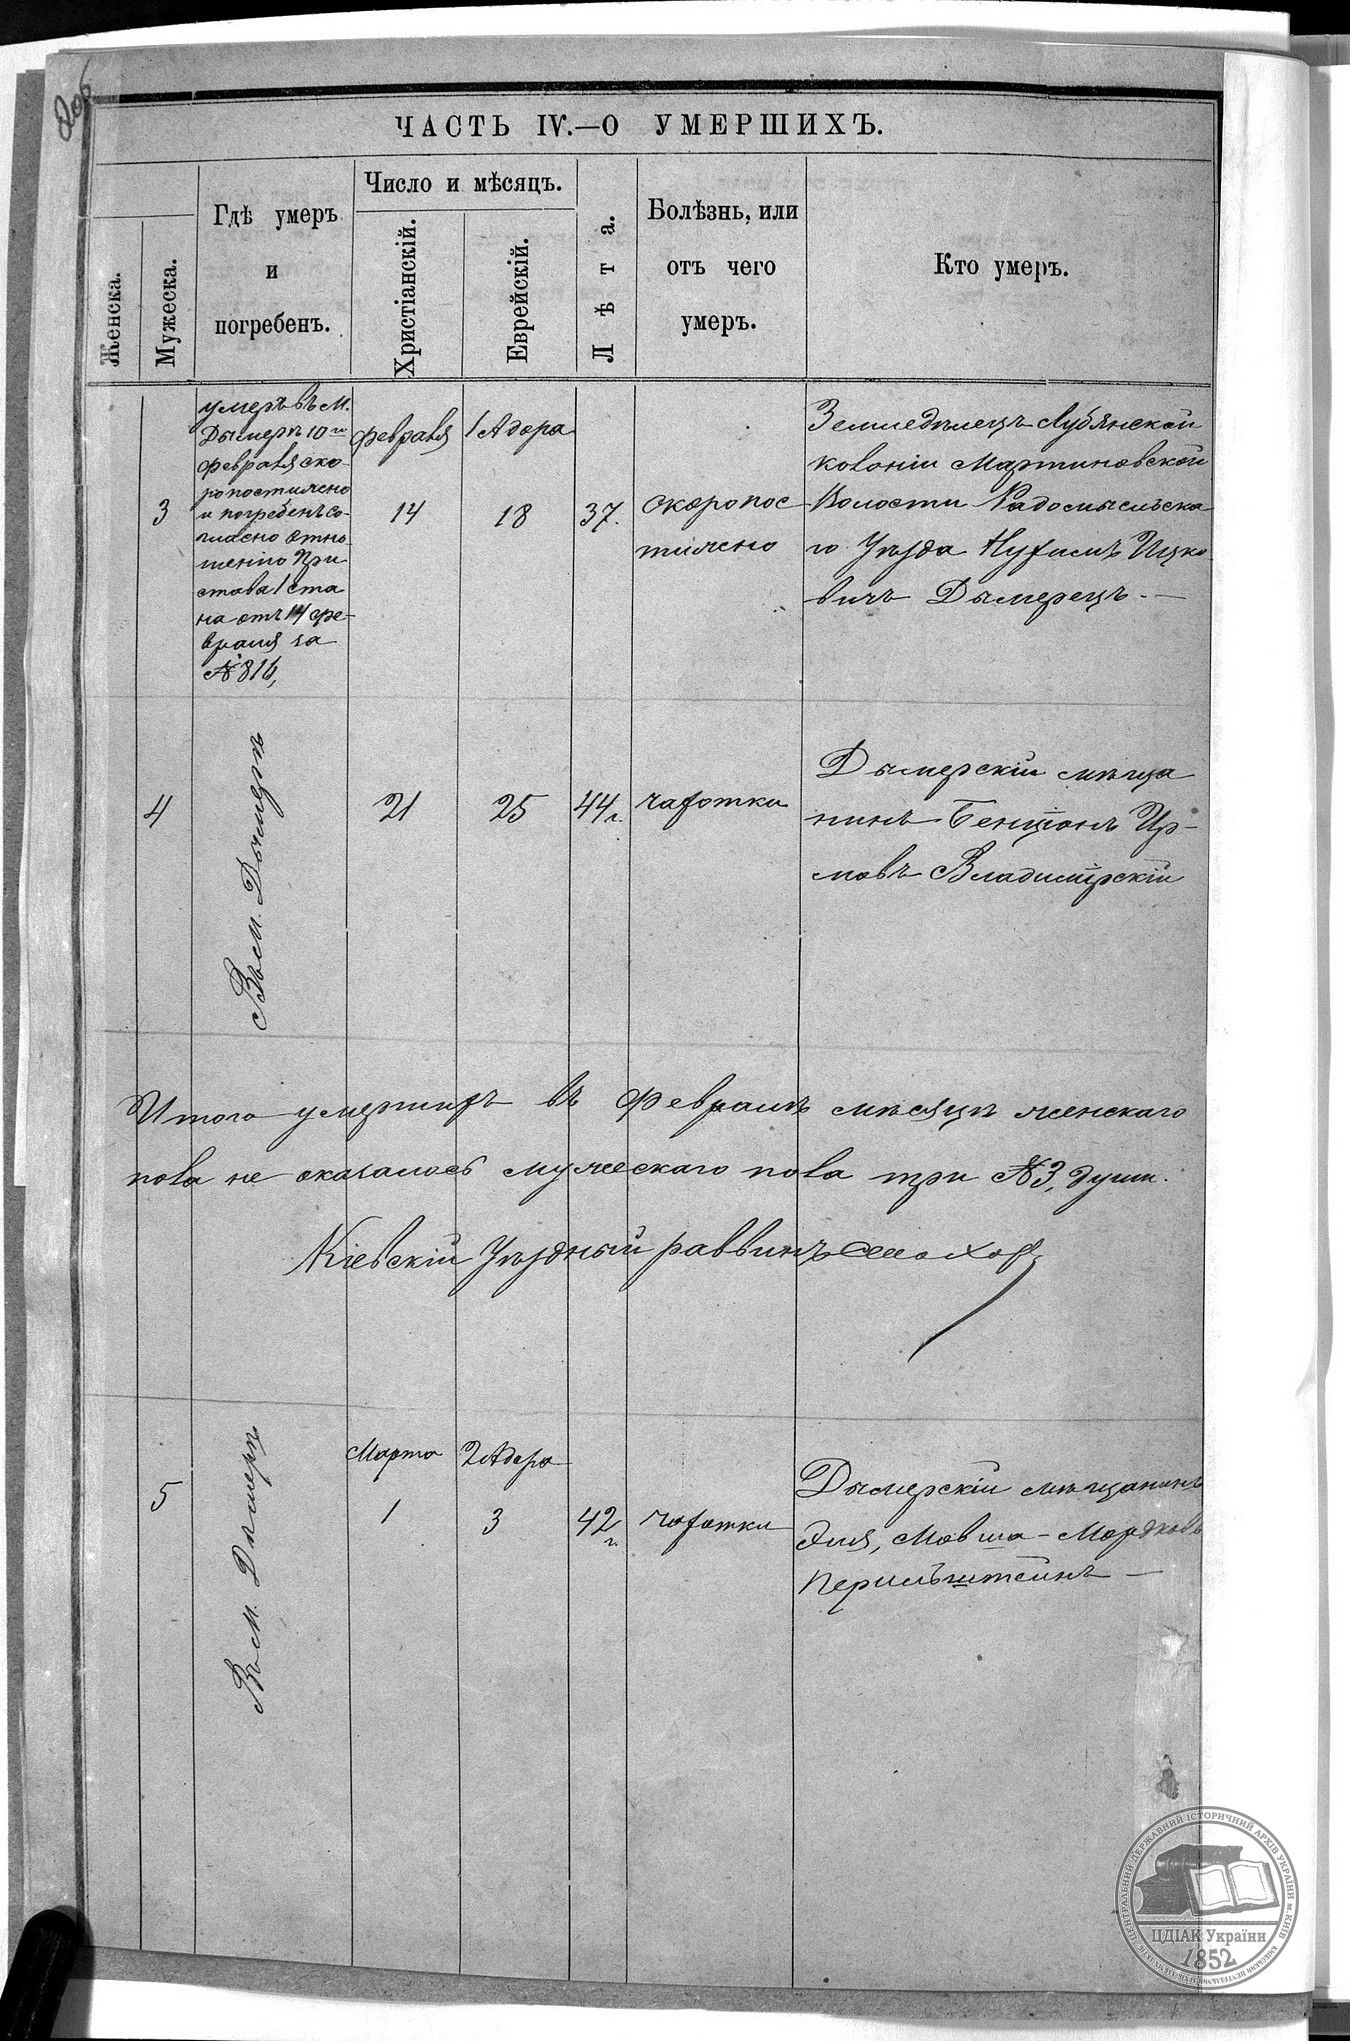 206
ЧАСТЬ IV.—О УМЕРШИХЪ.
Женска.
Мужеска.
Гдѣ умеръ
и
погребенъ.
Число и мѣсяцъ.
Христіанскій.
Еврейскій.
Лѣта.
Болѣзнь, или
отъ чего
умеръ.
Кто умеръ.
3
умеръ въ м.
Дымерѣ 10го
февраля ско-
ропостижно
и погребенъ со-
гласно отно
шенію При
става 1 ста
на отъ 14 фе-
враля за
№ 816,
февраля
14
1 Адора
18
37.
скоропос
тижно
Земледѣлецъ Лубянской
колоніи Мартиновской
Волости Радомысльска
го Уѣзда Нухимъ Ицко-
вичъ Дымерецъ. —
4
Въ м. Дымерѣ
21
25
44 г.
чахотки
Дымерскій мѣща
нинъ Бенціонъ Ир-
мовъ Владимірскій
Итого умершихъ въ февралѣ мѣсяцѣ женскаго
пола не оказалось мужескаго пола три № 3, души.
Кіевскій Уѣздный раввинъ
5
Въ м. Дымерѣ
Марта
1
2 Адора
3
42 г.
чахотки
Дымерскій мѣщанинъ
Эля, Мовша - Мордковъ
Перильштейнъ —
ЦЕНТРАЛЬНИЙ ДЕРЖАВНИЙ ІСТОРИЧНИЙ АРХІВ УКРАЇНИ м.КИЇВ
ЦДІАК України
1852